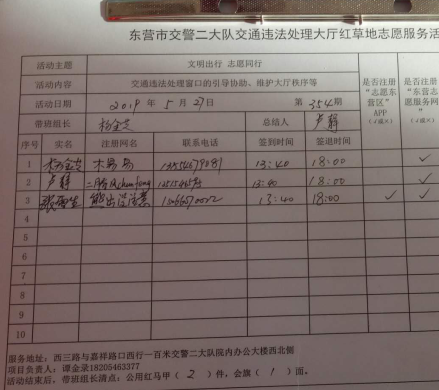 东营市交警二大队交通违法处理大厅红草地志愿服务活
活动主题 文明出行 志愿同行
活动内容 交通违法处理窗口的引导协助、维护大厅秩序等
活动日期 2019 年 5 月 27日 第 354期
带班组长 总结人 卢静
是否注册“志愿东营区”APP（√或×）
是否注册“东营志愿服务网”（√或×）
序号 实名 注册网名 联系电话 签到时间 签退时间
1 木易易 13:40 18:00 ✓
2 卢静 13:40 18:00 ✓
3 熊出没注意 13:40 18:00 ✓ ✓
4
5
6
7
8
9
10
服务地址：西三路与嘉祥路口西行一百米交警二大队院内办公大楼西北侧
项目负责人：谭金录18205463377
活动结束后，带班组长清点：公用红马甲（ 2 ）件，会旗（ 1 ）面。